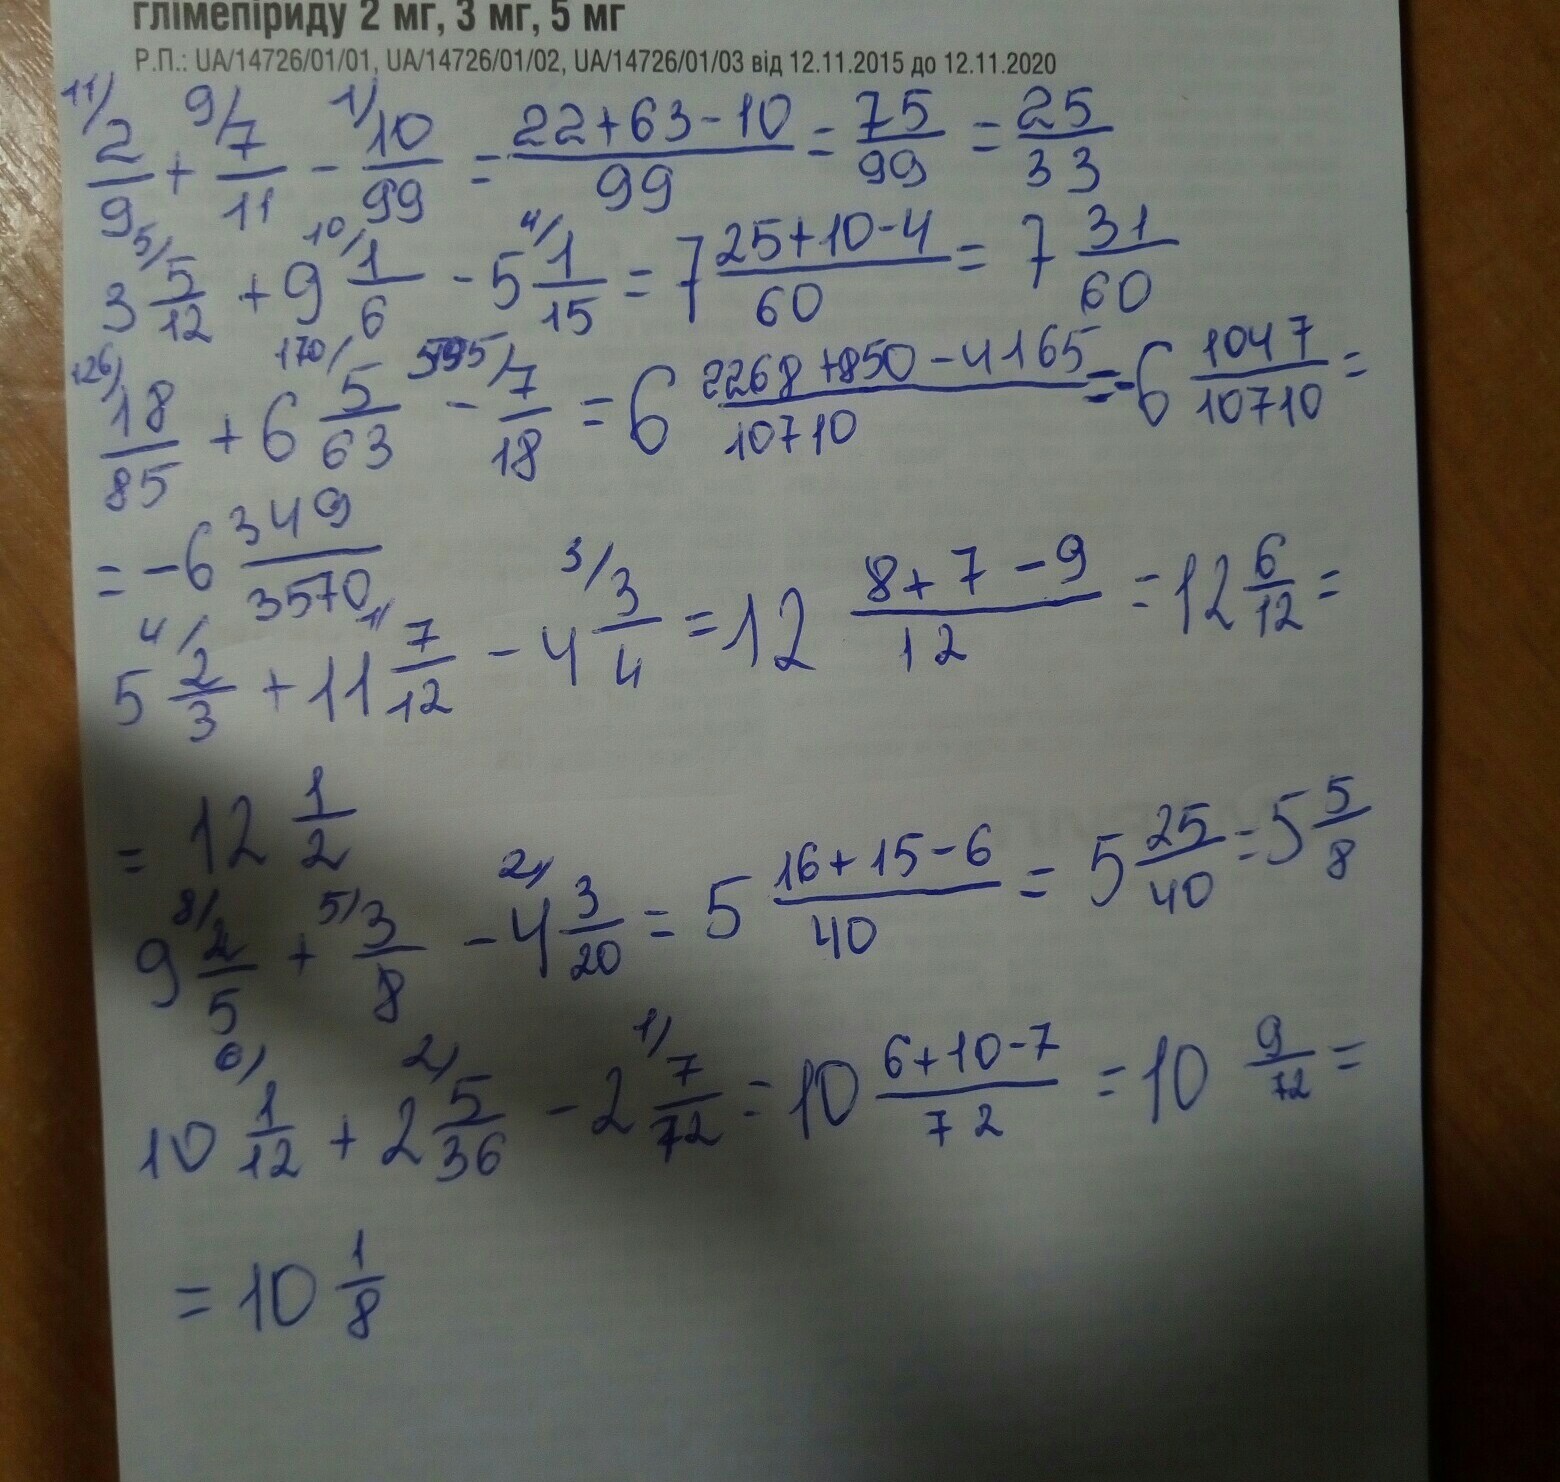 глімепіриду 2 мг, 3 мг, 5 мг
Р.П.: UA/14726/01/01, UA/14726/01/02, UA/14726/01/03 від 12.11.2015 до 12.11.2020
11/ 2/9 + 9/ 7/11 - 1/ 10/99 = (22+63-10)/99 = 75/99 = 25/33
3 5/ 5/12 + 9 10/ 1/6 - 5 4/ 1/15 = 7 (25+10-4)/60 = 7 31/60
126/ 18/85 + 6 170/ 5/63 - 595/ 7/18 = 6 (2268+850-4165)/10710 = -6 1047/10710 =
= -6 349/3570
5 4/ 2/3 + 11 1/ 7/12 - 4 3/ 3/4 = 12 (8+7-9)/12 = 12 6/12 =
= 12 1/2
9 8/ 2/5 + 5/ 3/8 - 4 2/ 3/20 = 5 (16+15-6)/40 = 5 25/40 = 5 5/8
10 6/ 1/12 + 2 2/ 5/36 - 2 1/ 7/72 = 10 (6+10-7)/72 = 10 9/72 =
= 10 1/8